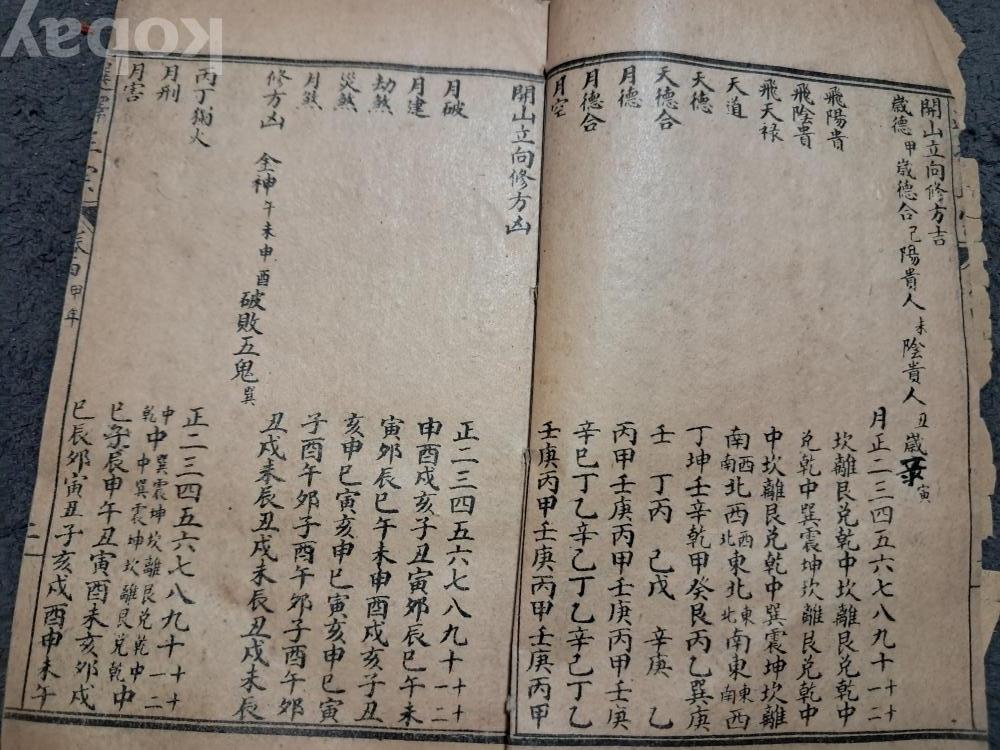 kobay
開山立向修方吉
歲德甲歲德合己陽貴人未陰貴人丑歲寅
月正二三四五六七八九十十一十二
飛陽貴 坎離艮兌乾中坎離艮兌乾中
飛陰貴 兌乾中巽震坤坎離艮兌乾中
飛天祿 中坎離艮兌乾中巽震坤坎離
天道 南西南北西西北東北東北南東東南西
天德 丁坤壬辛乾甲癸艮丙乙巽庚
天德合 壬 丁丙 己戊 辛庚 乙
月德 丙甲壬庚丙甲壬庚丙甲壬庚
月德合 辛巳丁乙辛己丁乙辛己丁乙
月空 壬庚丙甲壬庚丙甲壬庚丙甲
開山立向修方凶
正二三四五六七八九十十一十二
月破 申酉戌亥子丑寅卯辰巳午未
月建 寅卯辰巳午未申酉戌亥子丑
劫煞 亥申巳寅亥申巳寅亥申巳寅
災煞 子酉午卯子酉午卯子酉午卯
月煞 丑戌未辰丑戌未辰丑戌未辰
修方凶 金神午未申酉破敗五鬼巽
正二三四五六七八九十十一十二
丙丁獨火 中乾中巽中震巽坤震坎坤離坎艮離兌艮乾兌中乾中
月刑 巳子辰申午丑寅酉未亥卯戌
月害 巳辰卯寅丑子亥戌酉申未午
甲年
二